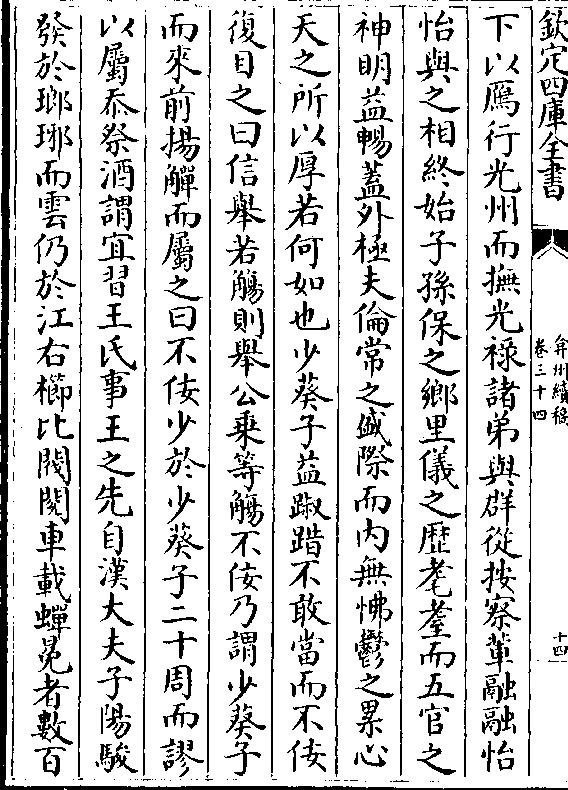 欽定四庫全書
弇州續稿
卷三十四
十四
下以鴈行光州而撫光祿諸弟與群從按察輩融融怡
怡與之相終始子孫保之鄉里儀之歷耄耋而五官之
神明益暢蓋外極夫倫常之盛際而内無怫鬱之累心
天之所以厚若何如也少葵子益踧踖不敢當而不佞
復目之曰信舉若觴則舉公乘等觴不佞乃謂少葵子
而來前揚觶而屬之曰不佞少於少葵子二十周而謬
以屬忝祭酒謂宜習王氏事王之先自漢大夫子陽駿
發於瑯琊而雲仍於江右櫛比閥閱車載蟬冕者數百